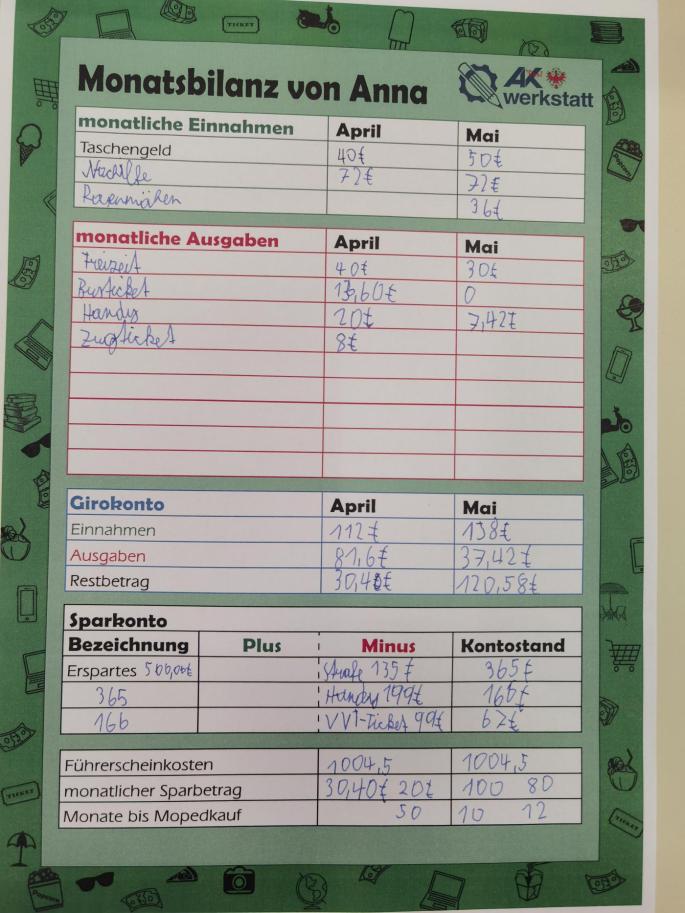 Monatsbilanz von Anna
AK Tirol
werkstatt
monatliche Einnahmen April Mai
Taschengeld 40€ 50€
Nachilfe 72€ 72€
Rasenmähen 36€
monatliche Ausgaben April Mai
Freizeit 40€ 30€
Busticket 13,60€ 0
Handy 20€ 7,42€
Zugticket 8€
Girokonto April Mai
Einnahmen 112€ 138€
Ausgaben 81,6€ 37,42€
Restbetrag 30,40€ 120,58€
Sparkonto
Bezeichnung Plus Minus Kontostand
Erspartes 500,00€ Strafe 135€ 365€
365 Handy 199€ 166€
166 VVT-Ticket 99€ 67€
Führerscheinkosten 1004,5 1004,5
monatlicher Sparbetrag 30,40€ 20€ 100 80
Monate bis Mopedkauf 50 10 12
TICKET
TICKET
TICKET
Popcorn
Popcorn